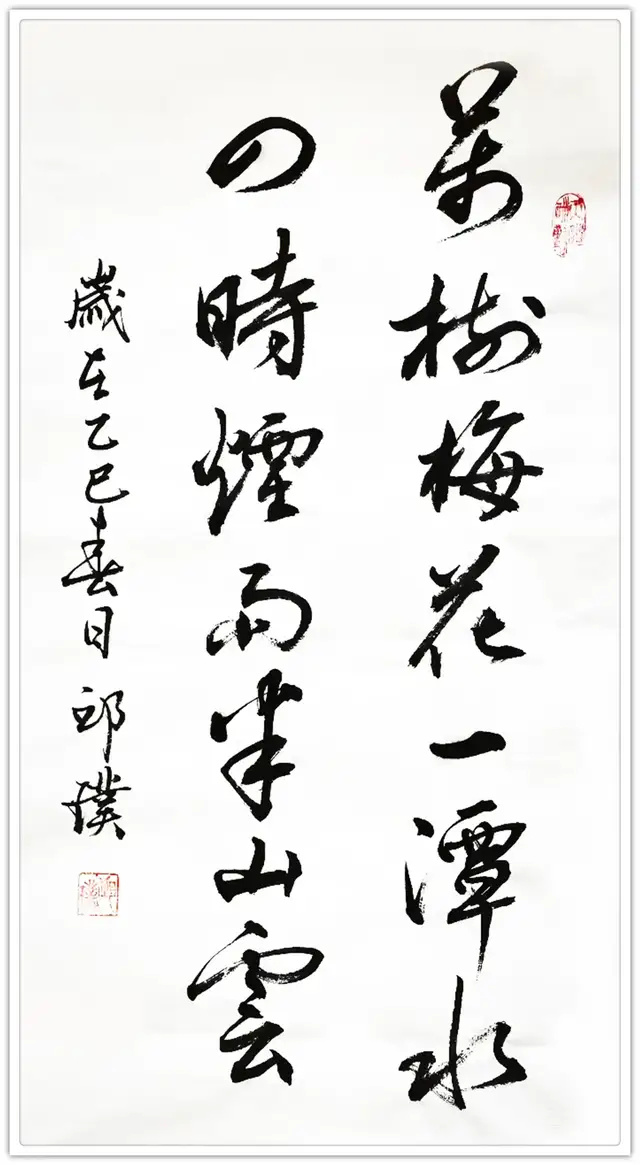 萬樹梅花一潭水
四時煙雨半山雲
歲在乙巳春日 邱璞